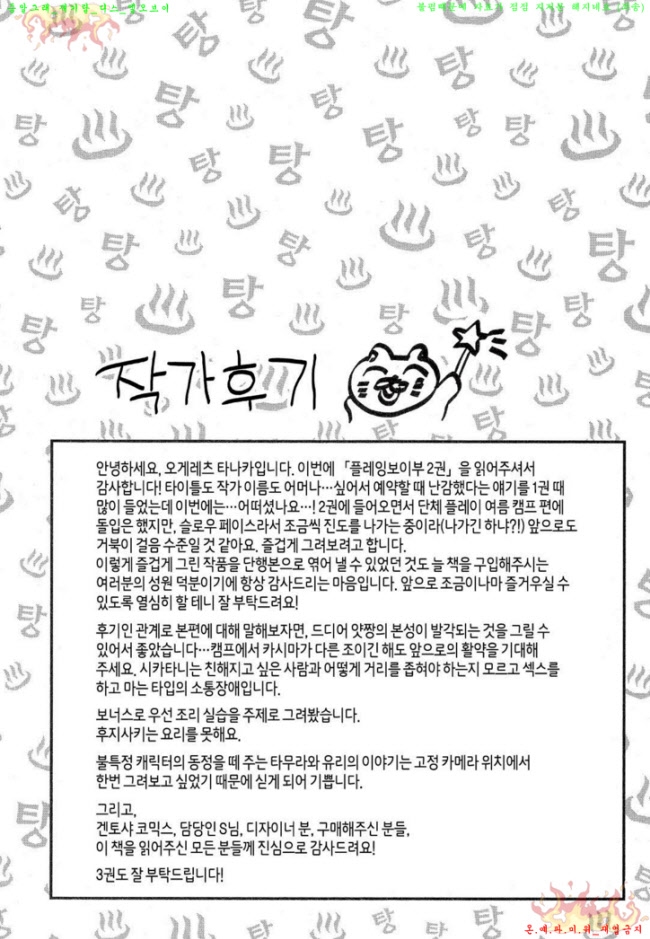 작가후기
안녕하세요, 오게레츠 타나카입니다. 이번에 「플레잉보이부 2권」을 읽어주셔서
감사합니다! 타이틀도 작가 이름도 어머나…싶어서 예약할 때 난감했다는 얘기를 1권 때
많이 들었는데 이번에는…어떠셨나요…! 2권에 들어오면서 단체 플레이 여름 캠프 편에
돌입은 했지만, 슬로우 페이스라서 조금씩 진도를 나가는 중이라(나가긴 하냐?!) 앞으로도
거북이 걸음 수준일 것 같아요. 즐겁게 그려보려고 합니다.
이렇게 즐겁게 그린 작품을 단행본으로 엮어 낼 수 있었던 것도 늘 책을 구입해주시는
여러분의 성원 덕분이기에 항상 감사드리는 마음입니다. 앞으로 조금이나마 즐거우실 수
있도록 열심히 할 테니 잘 부탁드려요!
후기인 관계로 본편에 대해 말해보자면, 드디어 얏짱의 본성이 발각되는 것을 그릴 수
있어서 좋았습니다…캠프에서 카시마가 다른 조이긴 해도 앞으로의 활약을 기대해
주세요. 시카타니는 친해지고 싶은 사람과 어떻게 거리를 좁혀야 하는지 모르고 섹스를
하고 마는 타입의 소통장애입니다.
보너스로 우선 조리 실습을 주제로 그려봤습니다.
후지사키는 요리를 못해요.
불특정 캐릭터의 동정을 떼 주는 타무라와 유리의 이야기는 고정 카메라 위치에서
한번 그려보고 싶었기 때문에 싣게 되어 기쁩니다.
그리고,
겐토샤 코믹스, 담당인 S님, 디자이너 분, 구매해주신 분들,
이 책을 읽어주신 모든 분들께 진심으로 감사드려요!
3권도 잘 부탁드립니다!